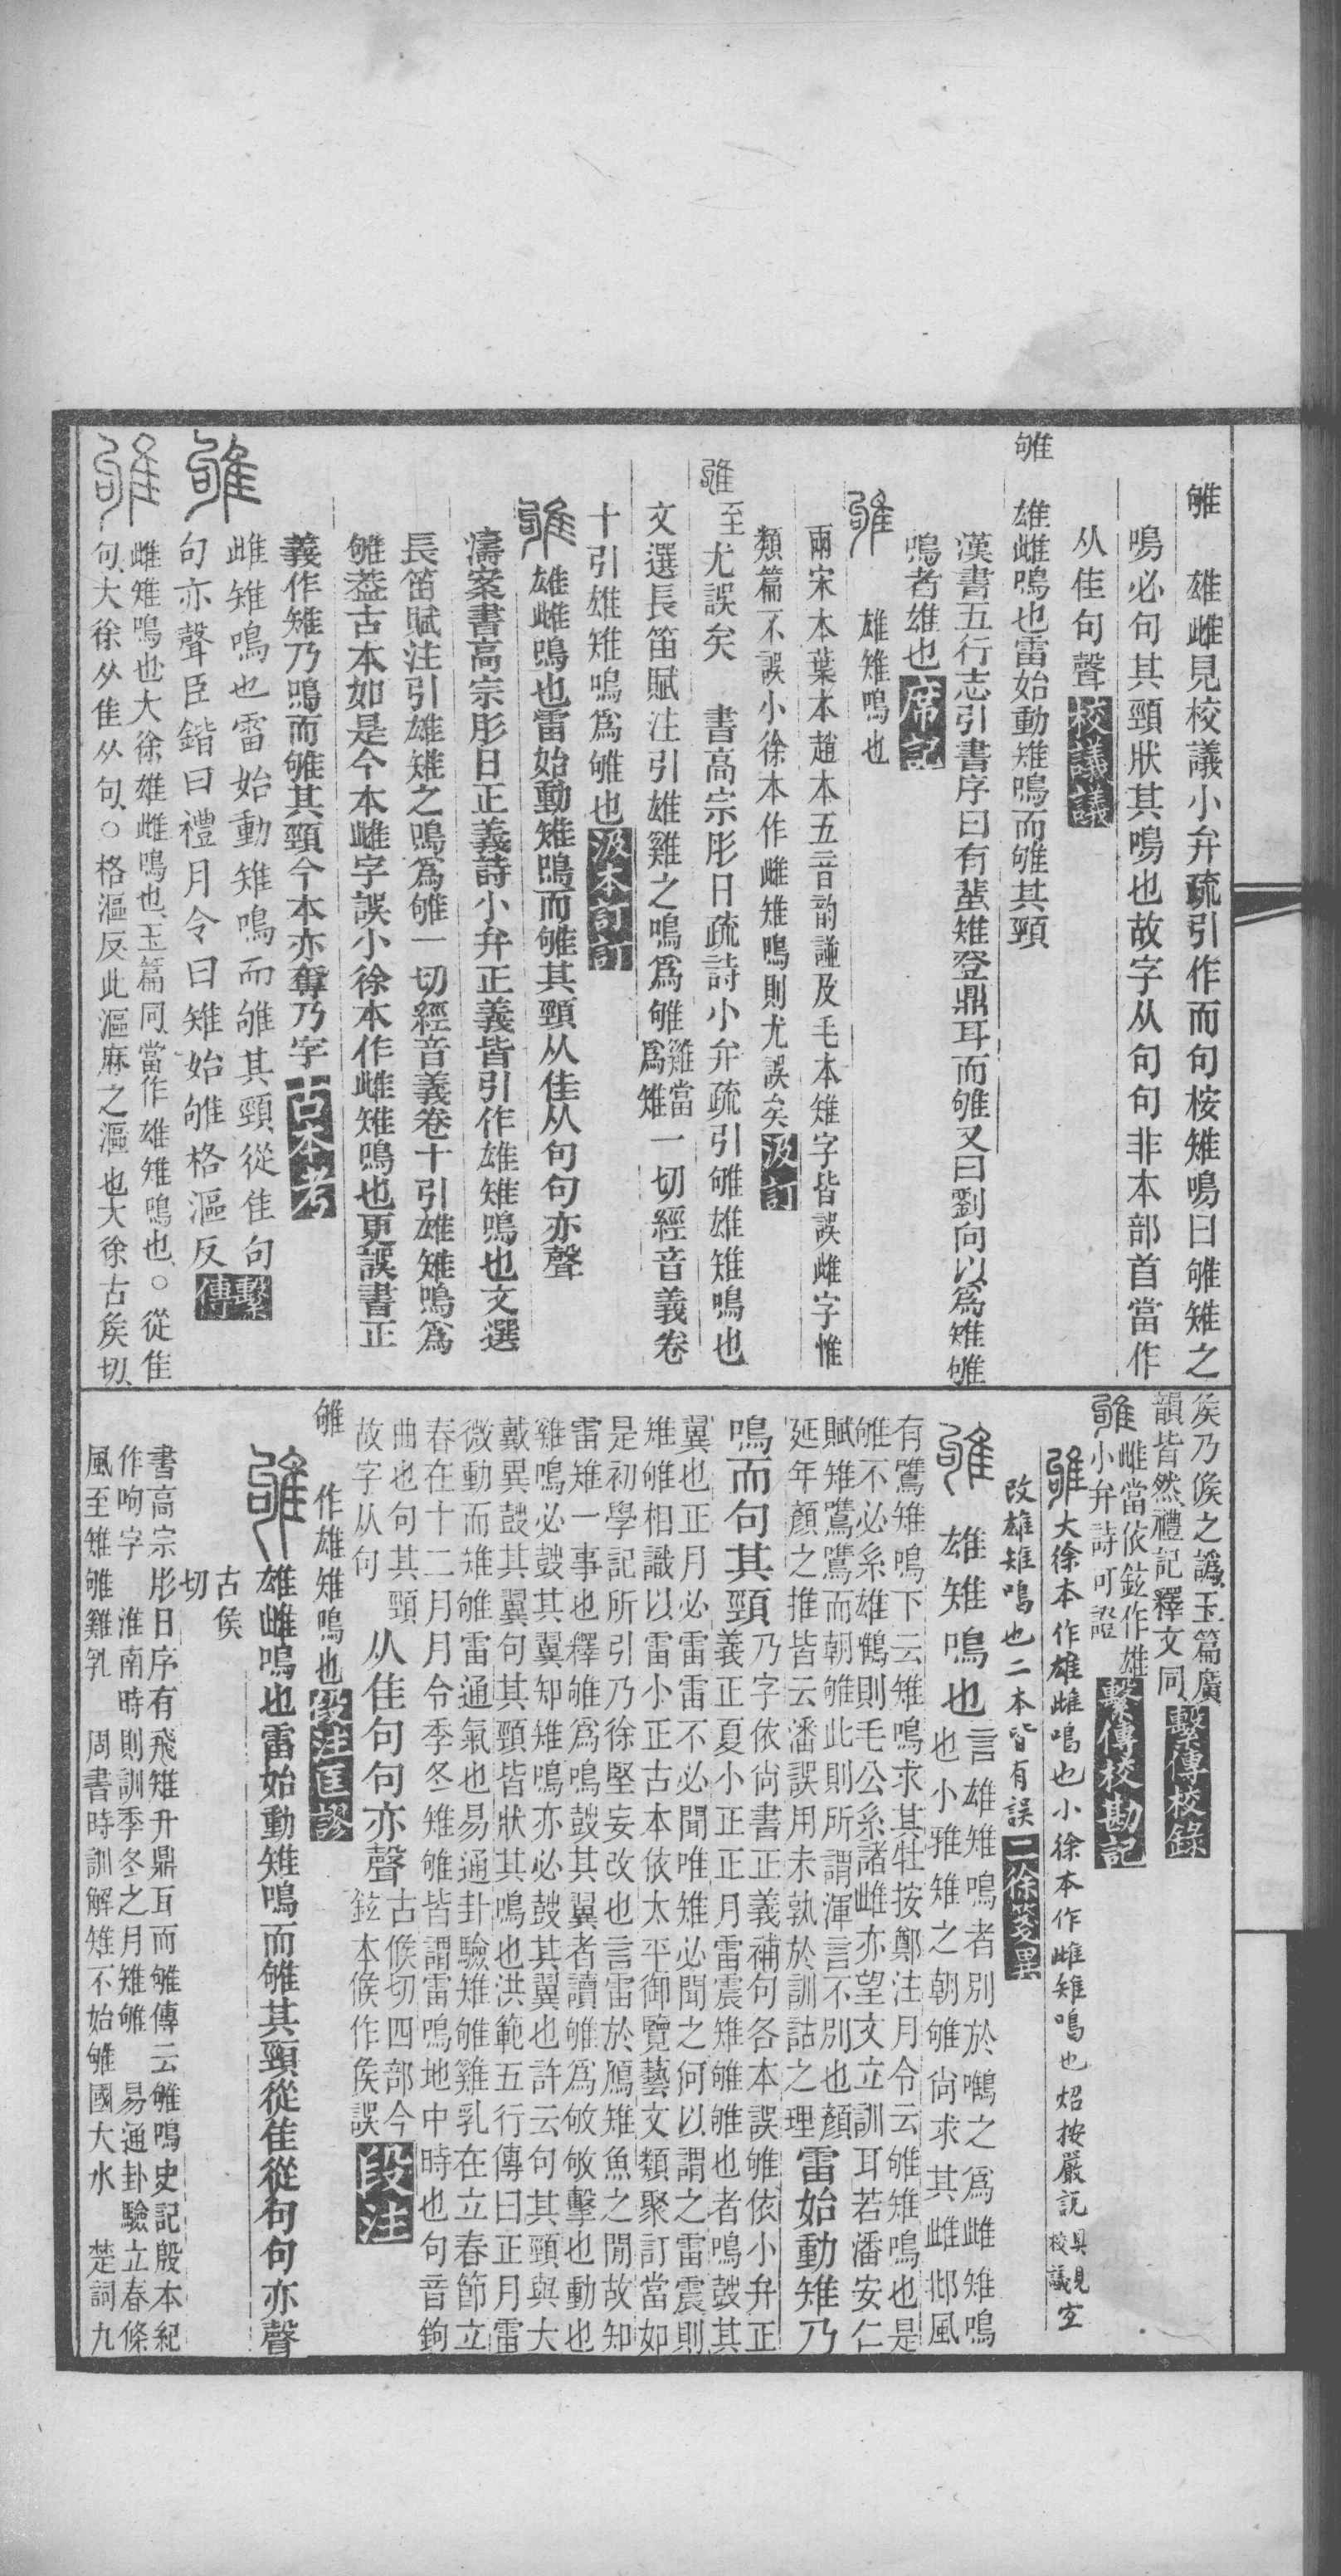 雊 雄雌見校議小弁疏引作而句桉雉鳴曰雊雉之
鳴必句其頸狀其鳴也故字从句句非本部首當作
从隹句聲校議議
雊 雄雌鳴也雷始動雉鳴而雊其頸
漢書五行志引書序曰有蜚雉登鼎耳而雊又曰劉向以爲雉雊
鳴者雄也席記
雊 雄雉鳴也
兩宋本葉本趙本五音韵譜及毛本雉字皆誤雌字惟
類篇不誤小徐本作雌雉鳴則尤誤矣汲訂
雊 至尤誤矣 書高宗肜日疏詩小弁疏引雊雄雉鳴也
文選長笛賦注引雄雞之鳴爲雊雞當爲雉一切經音義卷
十引雄雉鳴爲雊也汲本訂訂
雊 雄雌鳴也雷始動雉鳴而雊其頸从隹从句句亦聲
濤案書高宗肜日正義詩小弁正義皆引作雄雉鳴也文選
長笛賦注引雄雉之鳴爲雊一切經音義卷十引雄雉鳴爲
雊葢古本如是今本雌字誤小徐本作雌雉鳴也更誤書正
義作雉乃鳴而雊其頸今本亦奪乃字古本考
雊 雌雉鳴也雷始動雉鳴而雊其頸從隹句
句亦聲臣鍇曰禮月令曰雉始雊格漚反繫傳
雊 雌雉鳴也大徐雄雌鳴也玉篇同當作雄雉鳴也○從隹
句大徐从隹从句○格漚反此漚麻之漚也大徐古矦切
矦乃候之譌玉篇廣
韻皆然禮記釋文同繫傳校錄
雊 雌當依鉉作雄
小弁詩可證繫傳校勘記
雊 大徐本作雄雌鳴也小徐本作雌雉鳴也炤按嚴說具見校議宜
改雄雉鳴也二本皆有誤二徐箋異
雊 雄雉鳴也言雄雉鳴者別於鷕之爲雌雉鳴
也小雅雉之朝雊尙求其雌邶風
有鷕雉鳴下云雉鳴求其牡按鄭注月令云雊雉鳴也是
雊不必系雄鷕則毛公系諸雌亦望文立訓耳若潘安仁
賦雉鷕鷕而朝雊此則所謂渾言不別也顏
延年顏之推皆云潘誤用未孰於訓詁之理雷始動雉乃
鳴而句其頸乃字依尙書正義補句各本誤雊依小弁正
義正夏小正正月雷震雉雊雊也者鳴鼓其
翼也正月必雷雷不必聞唯雉必聞之何以謂之雷震則
雉雊相識以雷小正古本依太平御覽藝文類聚訂當如
是初學記所引乃徐堅妄改也言雷於鴈雉魚之閒故知
雷雉一事也釋雊爲鳴鼓其翼者讀雊爲敂敂擊也動也
雞鳴必鼓其翼知雉鳴亦必鼓其翼也許云句其頸與大
戴異鼓其翼句其頸皆狀其鳴也洪範五行傳曰正月雷
微動而雉雊雷通氣也易通卦驗雉雊雞乳在立春節立
春在十二月月令季冬雉雊皆謂雷鳴地中時也句音鉤
曲也句其頸
故字从句从隹句句亦聲古候切四部今
鉉本候作矦誤段注
雊 作雄雉鳴也段注匡謬
雊 雄雌鳴也雷始動雉鳴而雊其頸從隹從句句亦聲
古矦
切
書高宗肜日序有飛雉升鼎耳而雊傳云雊鳴史記殷本紀
作呴字 淮南時則訓季冬之月雉雊 易通卦驗立春條
風至雉雊雞乳 周書時訓解雉不始雊國大水 楚詞九